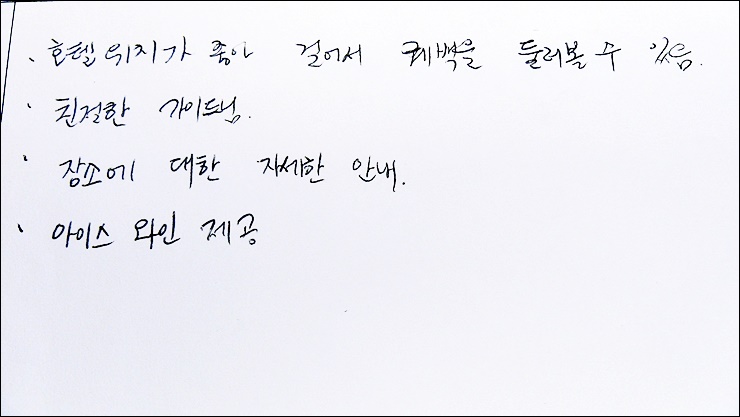 · 호텔 위치가 좋아 걸어서 퀘백을 둘러볼 수 있음.
· 친절한 가이드님.
· 장소에 대한 자세한 안내.
· 아이스 와인 제공